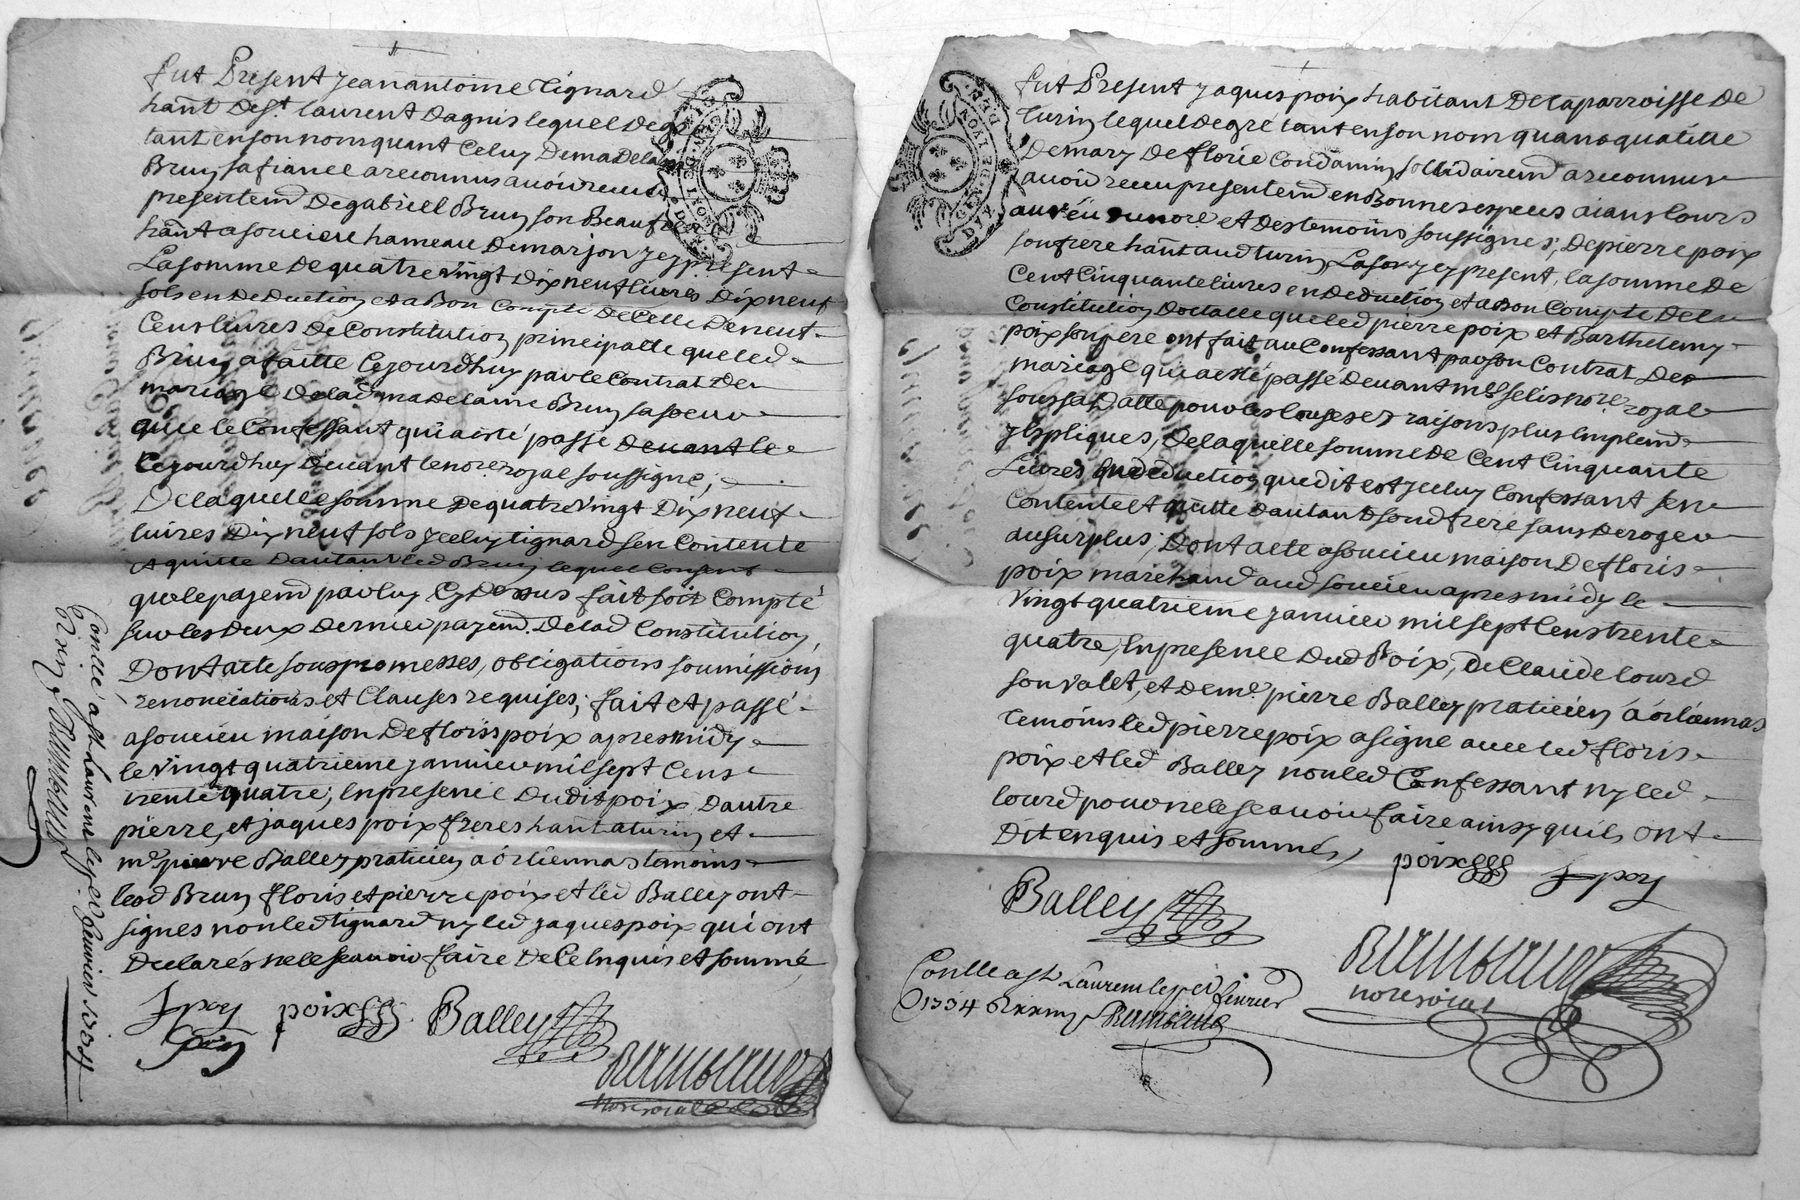 fut Present Jean antoine Tignard
hant De St. laurent Dagnis lequel De gre
tant en son nom quant Celuy De madelaine
Brun sa fiancee a reconnus auoir receu
presentemd De gabriel Brun son Beaufrere
hant a soucieu hameau De marjon jcy present
La somme De quatre vingt Dix neuf liures Dix neuf
sols en De Duction et a Bon Compte De Celle De neuf
Cens liures De Constitution principalle que led
Brun a faitte Cejourdhuy par le Contrat De
mariage De lad madelaine Brun sa soeur
auec le Confessant qui a esté passé deuant le
Cejourdhuy Deuant le nore royal soussigné;
De laquelle somme De quatre vingt Dix neuf
liures Dix neuf sols jceluy tignard sen Contente
et quitte Dautant led Brun lequel Consent
que le payemd par luy Cy Dessus fait soit Compté
sur les Deux Dernier payemd. De lad Constitution,
Dont acte sous promesses, obligations soumissions,
renonciations et Clauses requises; fait et passé
a soucieu maison De floris poix apres midy
le vingt quatrieme januier mil sept Cens
trente quatre; En presence Dudit poix Dautre
pierre, et jaques poix freres hant a turin et
me pierre Balley praticien a orliennas temoins
lesd Brun floris et pierre poix et led Balley ont
signes non led tignard ny led jaques poix qui ont
Declarés ne le scauoir faire De Ce Enquis et sommé
poix Balley
nore royal
Conllé a St Laurens le per feurier 1734
fut Present jaques poix habitant De la parroisse De
Turin lequel De gre tant en son nom quan qualitte
De mary De florie Condamin sollidairemd a reconnu
auoir receu presentemd en Bonnes especes aians Cours
au veu du nore et Des temoins soussignes; De pierre poix
son frere hant aud turin, jcy present, la somme De
Cent Cinquante liures en De Duction et a Bon Compte De la
Constitution Dotalle que led pierre poix et Barthelemy
poix son pere ont fait au Confessant par son Contrat De
mariage qui a esté passé Deuant me selis nore royal
sous sa Datte pour les Causes et raisons plus Emplemd
y Expliques, De laquelle somme De Cent Cinquante
Liures En deduction que dit est jceluy Confessant sen
Contente et quitte Dautant soud frere sans Deroger
au surplus; Dont acte a soucieu maison De floris
poix marchand aud soucieu apres midy le
vingt quatrieme januier mil sept Cens trente
quatre, En presence Dud Poix, De Claude lourd
son valet, et De me. pierre Balley praticien a orliennas
temoins led pierre poix a signe auec led floris
poix et led Balley non led Confessant ny led
lourd pour ne le scauoir faire ainsy quils ont
Dit enquis et sommés,
poix
Balley
nore royal
Conllé a St Laurens le per feurier
1734